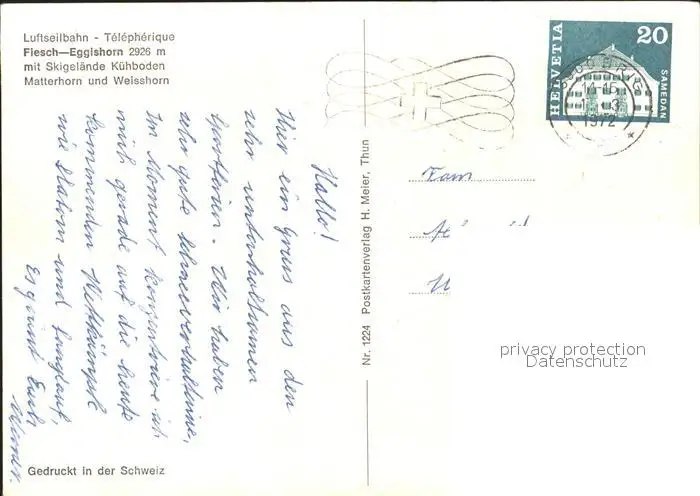 Luftseilbahn - Téléphérique
Fiesch—Eggishorn 2926 m
mit Skigelände Kühboden
Matterhorn und Weisshorn
Hallo!
Hier ein Gruss aus den
sehr unterhaltsamen
Sportferien. Wir haben
sehr gute Schneeverhältnisse.
Im Moment konzentriere ich
mich gerade auf die heute
kommenden Wettkämpfe
wie Slalom und Langlauf.
Es grüsst Euch
Werner.
Gedruckt in der Schweiz
Nr. 1224 Postkartenverlag H. Meier, Thun
HELVETIA
20
SAMEDAN
BRIG
1972
Fam
privacy protection
Datenschutz